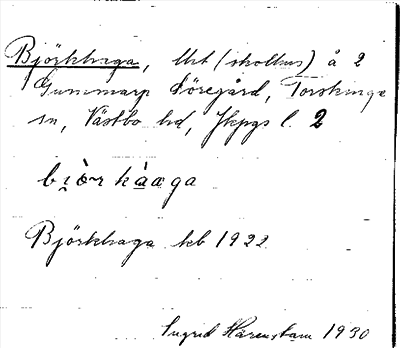 Björkhaga, lht (skolhus) å 2
Gummarp Söregård, Torskinge
sn, Västbo hd, Jkpgs l. 2
bi̯ò̱rkàaga
Björkhaga kb 1922
Ingrid Härenstam 1930